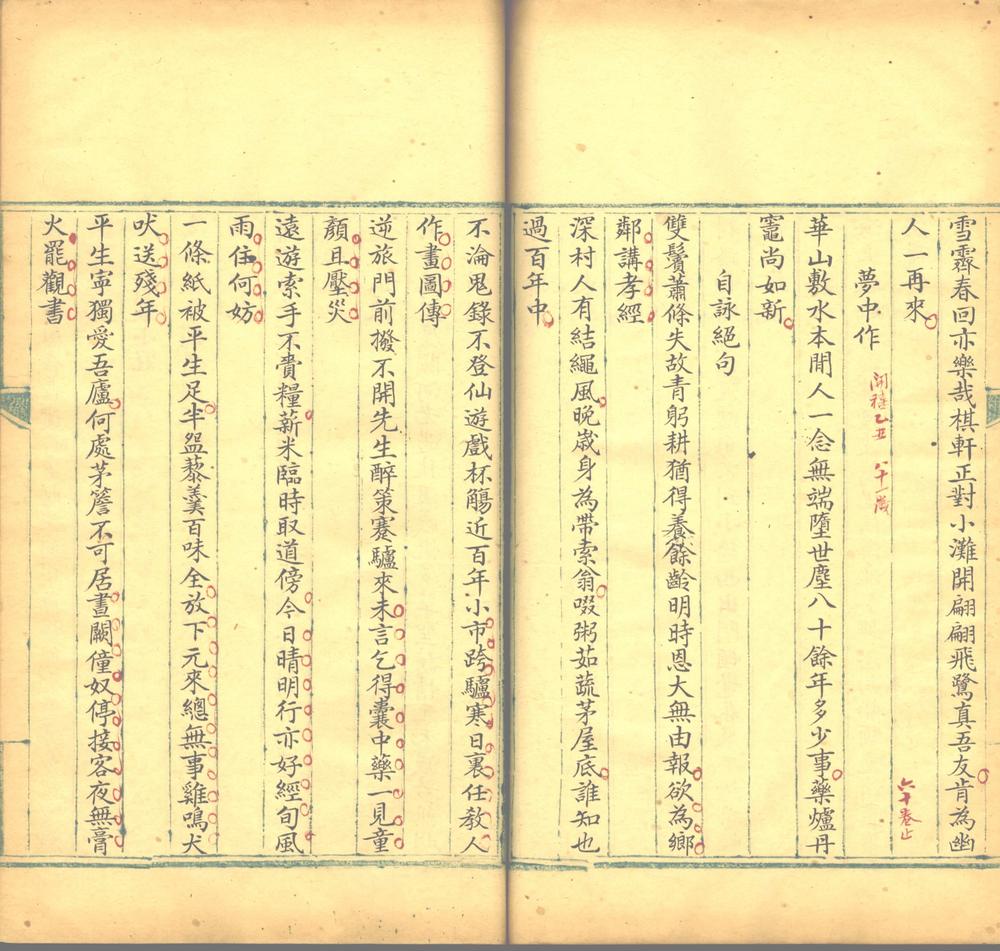 雪霽春回亦樂哉棋軒正對小灘開翩翩飛鷺真吾友肯為幽
人一再來
夢中作
開禧乙丑 八十一歲
六十卷止
華山敷水本閒人一念無端墮世塵八十餘年多少事藥爐丹
竈尚如新
自詠絕句
雙鬢蕭條失故青躬耕猶得養餘齡明時恩大無由報欲為鄉
鄰講孝經
深村人有結繩風晚歲身為帶索翁啜粥茹蔬茅屋底誰知也
過百年中
不淪鬼錄不登仙遊戲杯觴近百年小市跨驢寒日裏任教人
作畫圖傳
逆旅門前撥不開先生醉策蹇驢來未言乞得囊中藥一見童
顏且壓災
遠遊索手不賫糧薪米臨時取道傍今日晴明行亦好經旬風
雨住何妨
一條紙被平生足半盌藜羹百味全放下元來總無事雞鳴犬
吠送殘年
平生寧獨愛吾廬何處茅簷不可居晝闕僮奴停接客夜無膏
火罷觀書